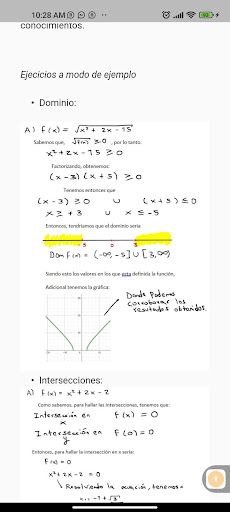 10:28 AM
conocimientos.
Ejecicios a modo de ejemplo
• Dominio:
A) f(x) = √x² + 2x - 15
Sabemos que, √f(x) ≥ 0, por lo tanto:
x² + 2x - 15 ≥ 0
Factorizando, obtenemos:
(x - 3)(x + 5) ≥ 0
Tenemos entonces que
(x - 3) ≥ 0 U (x + 5) ≤ 0
x ≥ +3 U x ≤ -5
Entonces, tendríamos que el dominio sería
5 0 3
Dom f(x) = (-∞, -5] U [3, ∞)
Siendo esto los valores en los que esta definida la función,
Adicional tenemos la gráfica:
Donde Podemos
corroborar los
resultados obtenidos.
• Intersecciones:
A) f(x) = x² + 2x - 2
Como sabemos, para hallar las intersecciones, tenemos que:
Intersección en x f(x) = 0
Intersección en y f(0) = 0
Entonces, para hallar la intersección en x sería:
f(x) = 0
x² + 2x - 2 = 0
Resolviendo la ecuación, tenemos
x₁ = -1 + √3